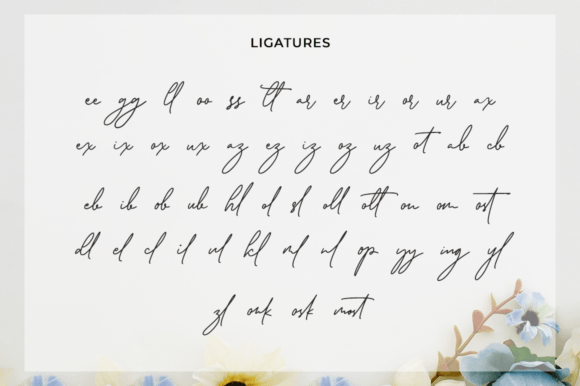 LIGATURES
ee gg ll oo ss tt ar er ir or ur ax
ex ix ox ux az ez iz oz uz ot ab cb
eb ib ob ub hl ol sl oll olt on om ost
dl el cl il ul kl ml nl op yy ing yl
zl onk osk most